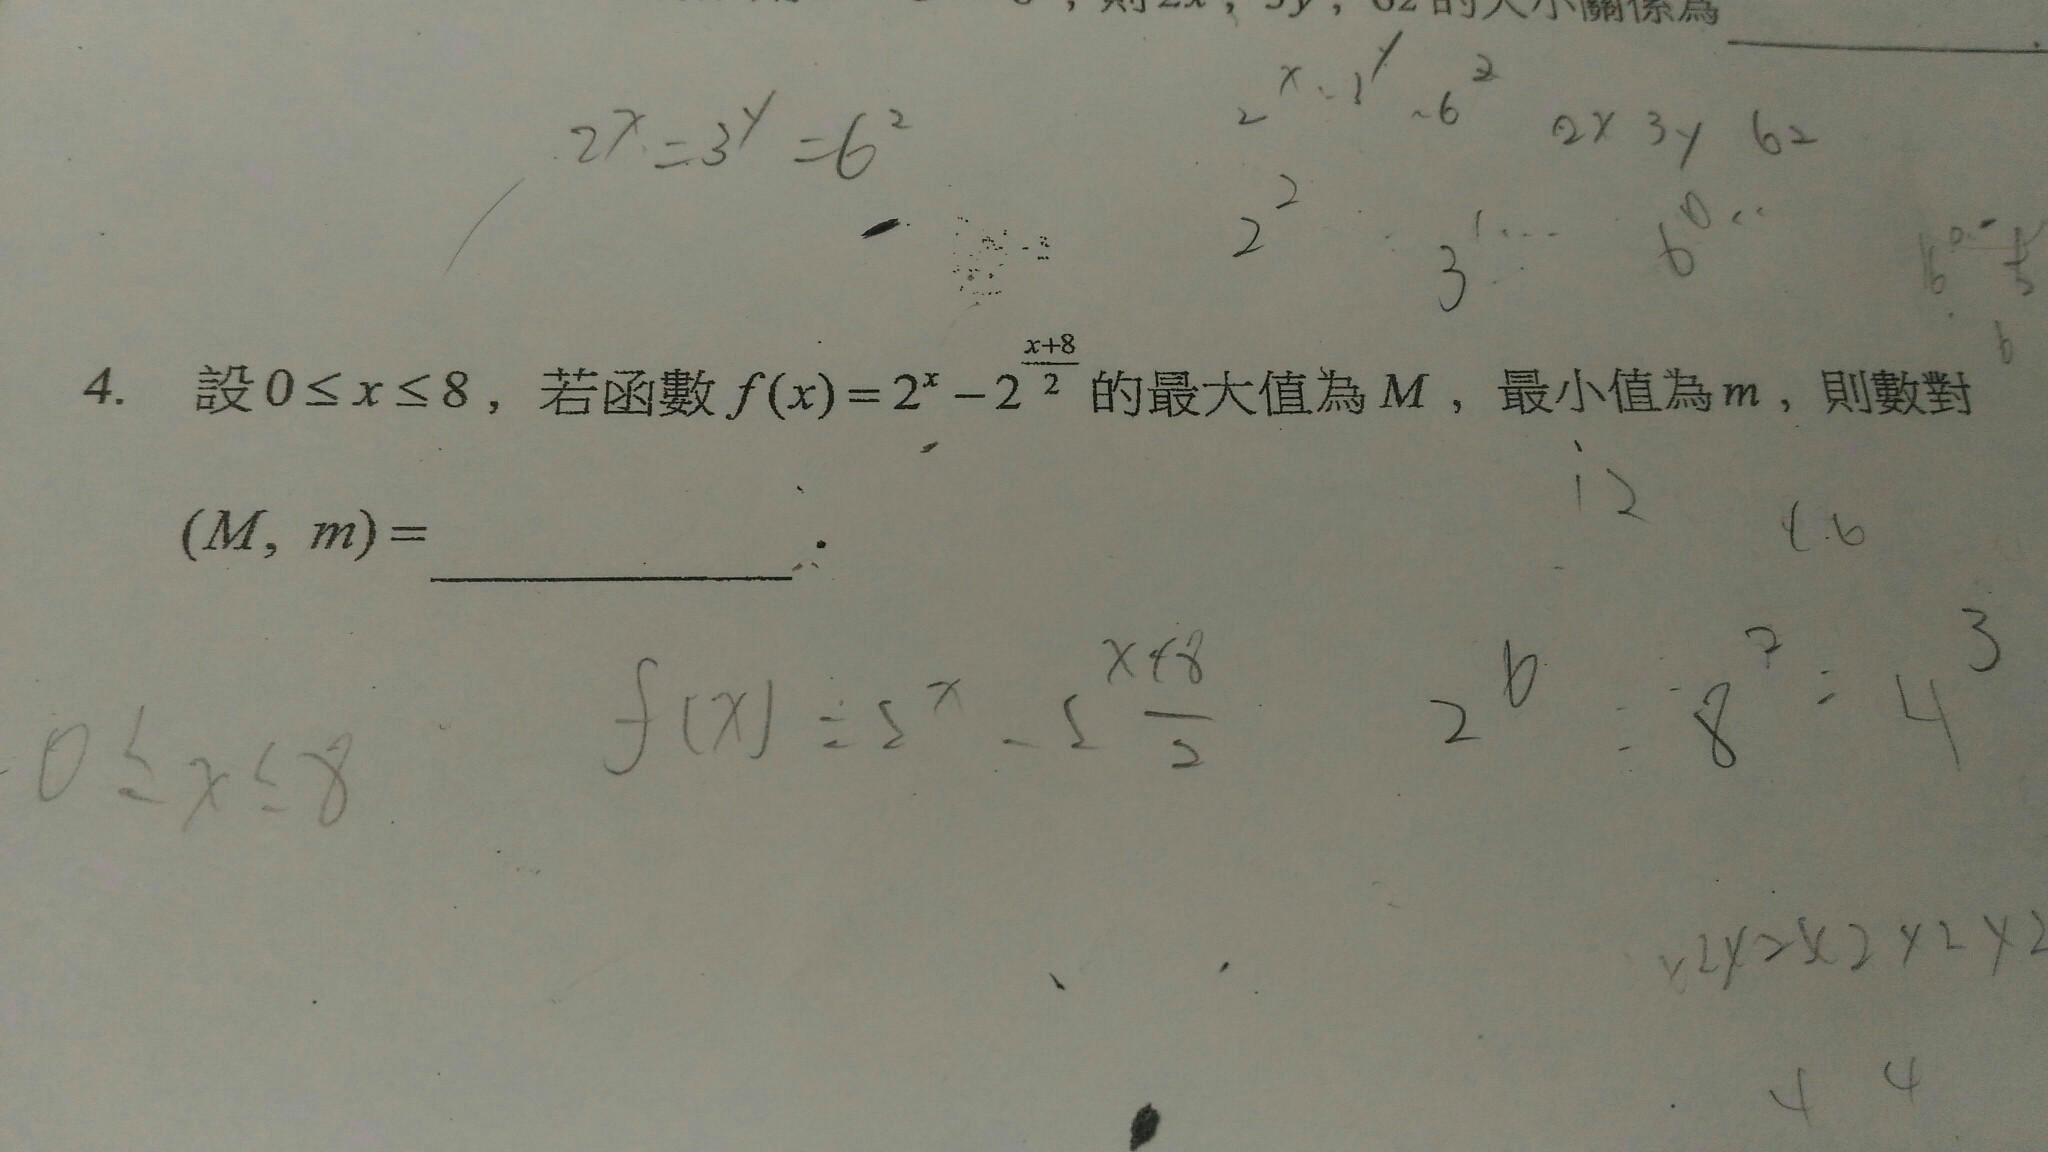 ，則2x，3y，6z的大小關係為
2^x=3^y=6^2
2^x 3^y 6^2 2x 3y 6z
2^2 3^1... 6^0..
4. 設0≤x≤8，若函數f(x)=2^x-2^{\frac{x+8}{2}}的最大值為M，最小值為m，則數對
12
(M, m)=.
0≤x≤8
f(x)=2^x-2^{\frac{x+8}{2}}
2^6 = 8^2 = 4^3
4 4